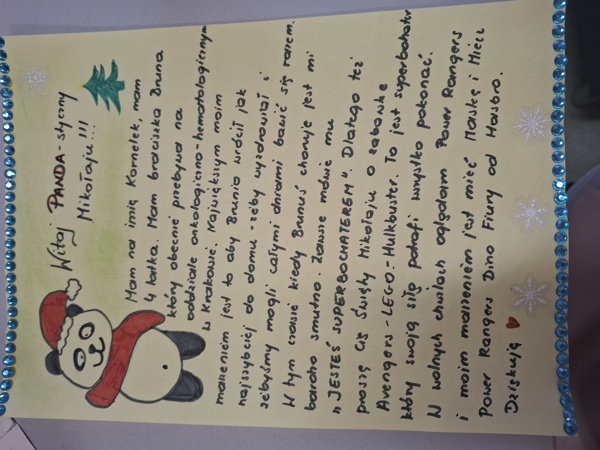 Witaj PANDA-styczny
Mikołaju!!!
Mam na imię Kornelek, mam
4 latka. Mam braciszka Bruna
który obecnie przebywa na
oddziale onkologiczno-hematologicznym
w Krakowie. Największym moim
marzeniem jest to aby Brunio wrócił jak
najszybciej do domu -żeby wyzdrowiał i
żebyśmy mogli całymi dniami bawić się razem.
W tym czasie kiedy Brunuś choruje jest mi
bardzo smutno. Zawsze mówię mu
„JESTEŚ SUPERBOHATEREM". Dlatego też
proszę Cię Święty Mikołaju o zabawkę
Avengers -LEGO- Hulkbuster. To jest superbohater
który swoją siłą potrafi wszystko pokonać.
W wolnych chwilach oglądam Power Rangers
i moim marzeniem jest mieć Maskę i Miecz
Power Rangers Dino Fiury od Hasbro.
Dziękuję